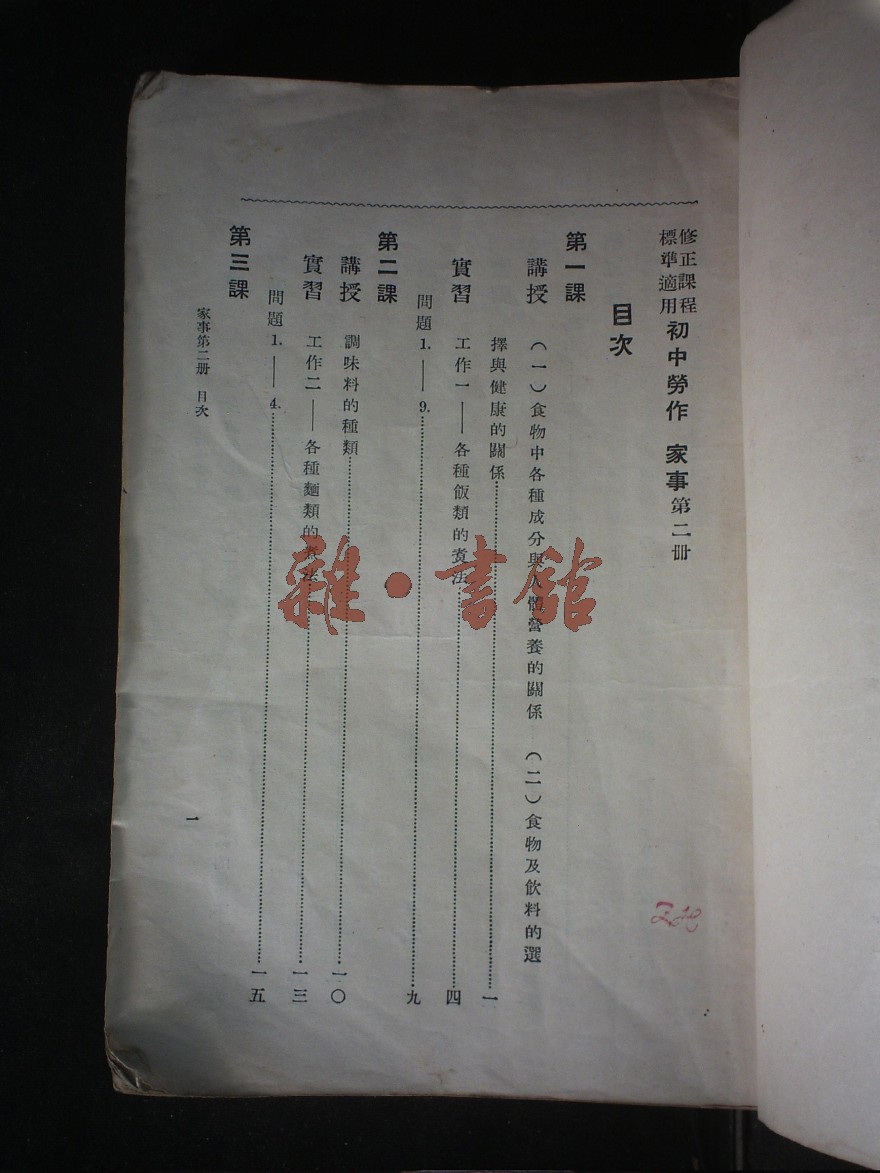 修正課程
標準適用
初中勞作 家事第二册
目次
第一課
講授 （一）食物中各種成分與人體營養的關係 （二）食物及飲料的選
擇與健康的關係……一
實習 工作一——各種飯類的煑法……四
問題1.——9.……九
第二課
講授 調味料的種類……一〇
實習 工作二——各種麵類的煑法……一三
問題1.——4.……一五
第三課
家事第二册 目次
一
雜·書館